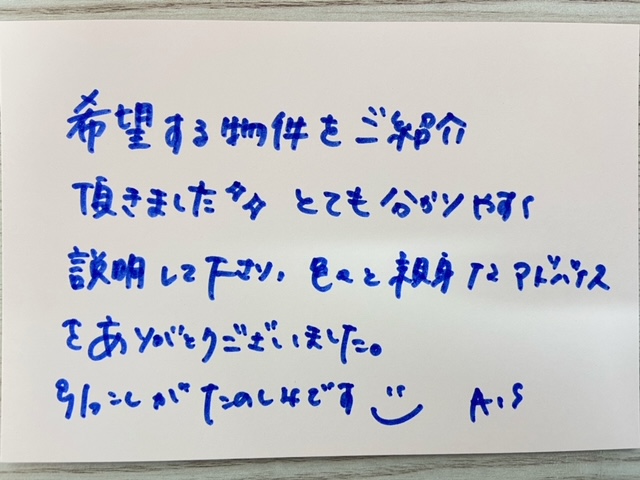 希望する物件をご紹介
頂きました☆☆ とても分かりやすく
説明して下さり、色々と親身なアドバイス
をありがとうございました。
引っこしがたのしみです A.S